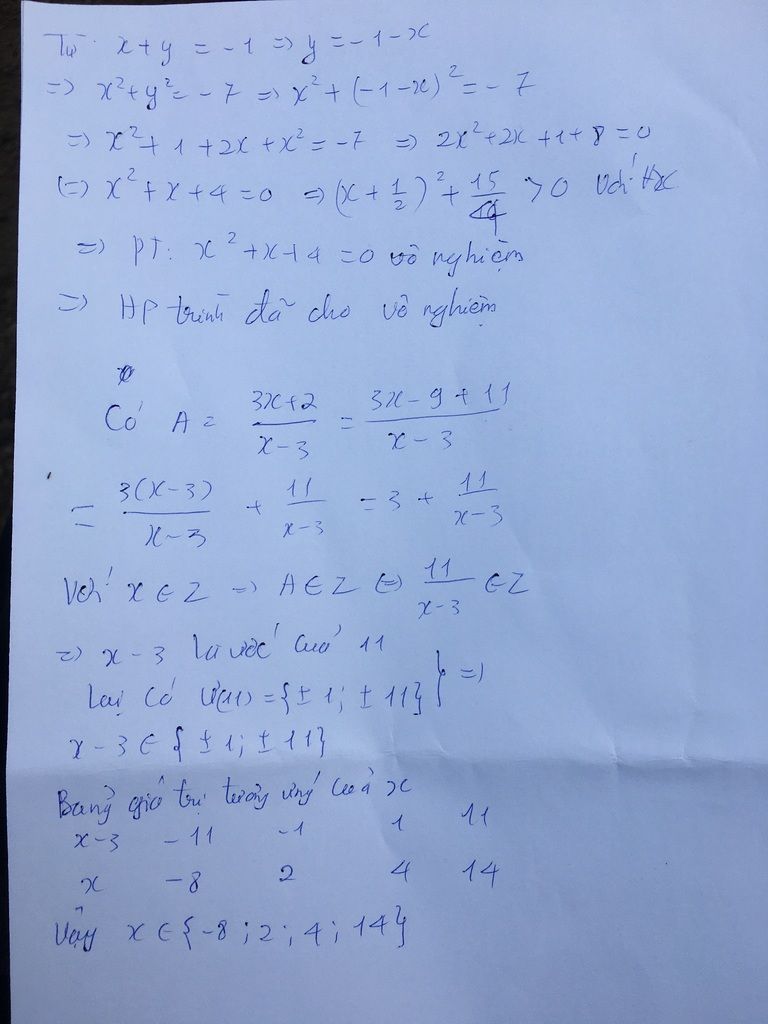 Từ x + y = -1 => y = -1 - x
=> x² + y² = -7 => x² + (-1-x)² = -7
=> x² + 1 + 2x + x² = -7 => 2x² + 2x + 1 + 8 = 0
(=) x² + x + 4 = 0 => (x + 1/2)² + 15/4 > 0 với ∀x
=> PT: x² + x + 4 = 0 vô nghiệm
=> HP trình đã cho vô nghiệm
Có A = (3x+2)/(x-3) = (3x - 9 + 11)/(x-3)
= 3(x-3)/(x-3) + 11/(x-3) = 3 + 11/(x-3)
Với x ∈ Z => A ∈ Z (=) 11/(x-3) ∈ Z
=> x - 3 là ước của 11
Lại có Ư(11) = {±1; ±11} } =>
x - 3 ∈ {±1; ±11}
Bảng giá trị tương ứng của x
x-3 -11 -1 1 11
x -8 2 4 14
Vậy x ∈ {-8; 2; 4; 14}